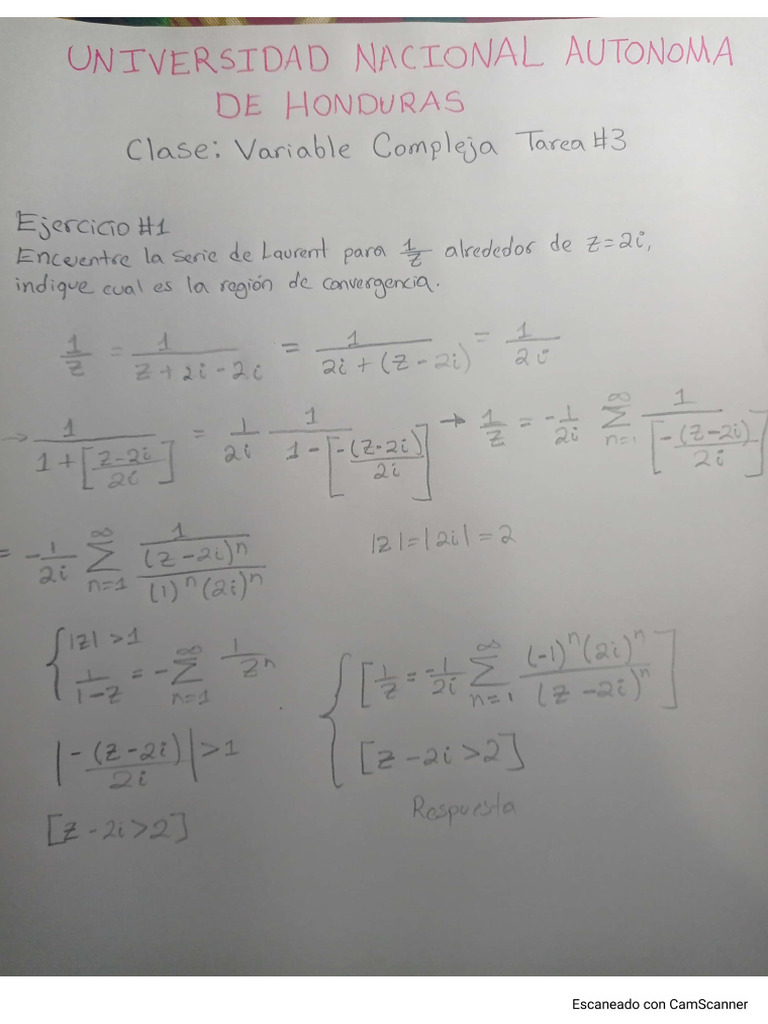 UNIVERSIDAD NACIONAL AUTONOMA
DE HONDURAS
Clase: Variable Compleja Tarea #3
Ejercicio #1
Encuentre la serie de Laurent para 1/z alrededor de z=2i,
indique cual es la región de convergencia.
1/z = 1/(z+2i-2i) = 1/(2i+(z-2i)) = 1/2i
→ 1/(1+[(z-2i)/2i]) = 1/2i 1/(1-[-(z-2i)/2i]) → 1/z = -1/2i ∑_{n=1}^{∞} 1/[-(z-2i)/2i]
= -1/2i ∑_{n=1}^{∞} 1/((z-2i)^n/((1)^n(2i)^n)) |z|=|2i|=2
{ |z|>1
1/(1-z) = -∑_{n=1}^{∞} 1/z^n
{ [1/z = -1/2i ∑_{n=1}^{∞} (-1)^n(2i)^n/(z-2i)^n]
|-(z-2i)/2i|>1
[z-2i>2]
Respuesta
[z-2i>2]
Escaneado con CamScanner